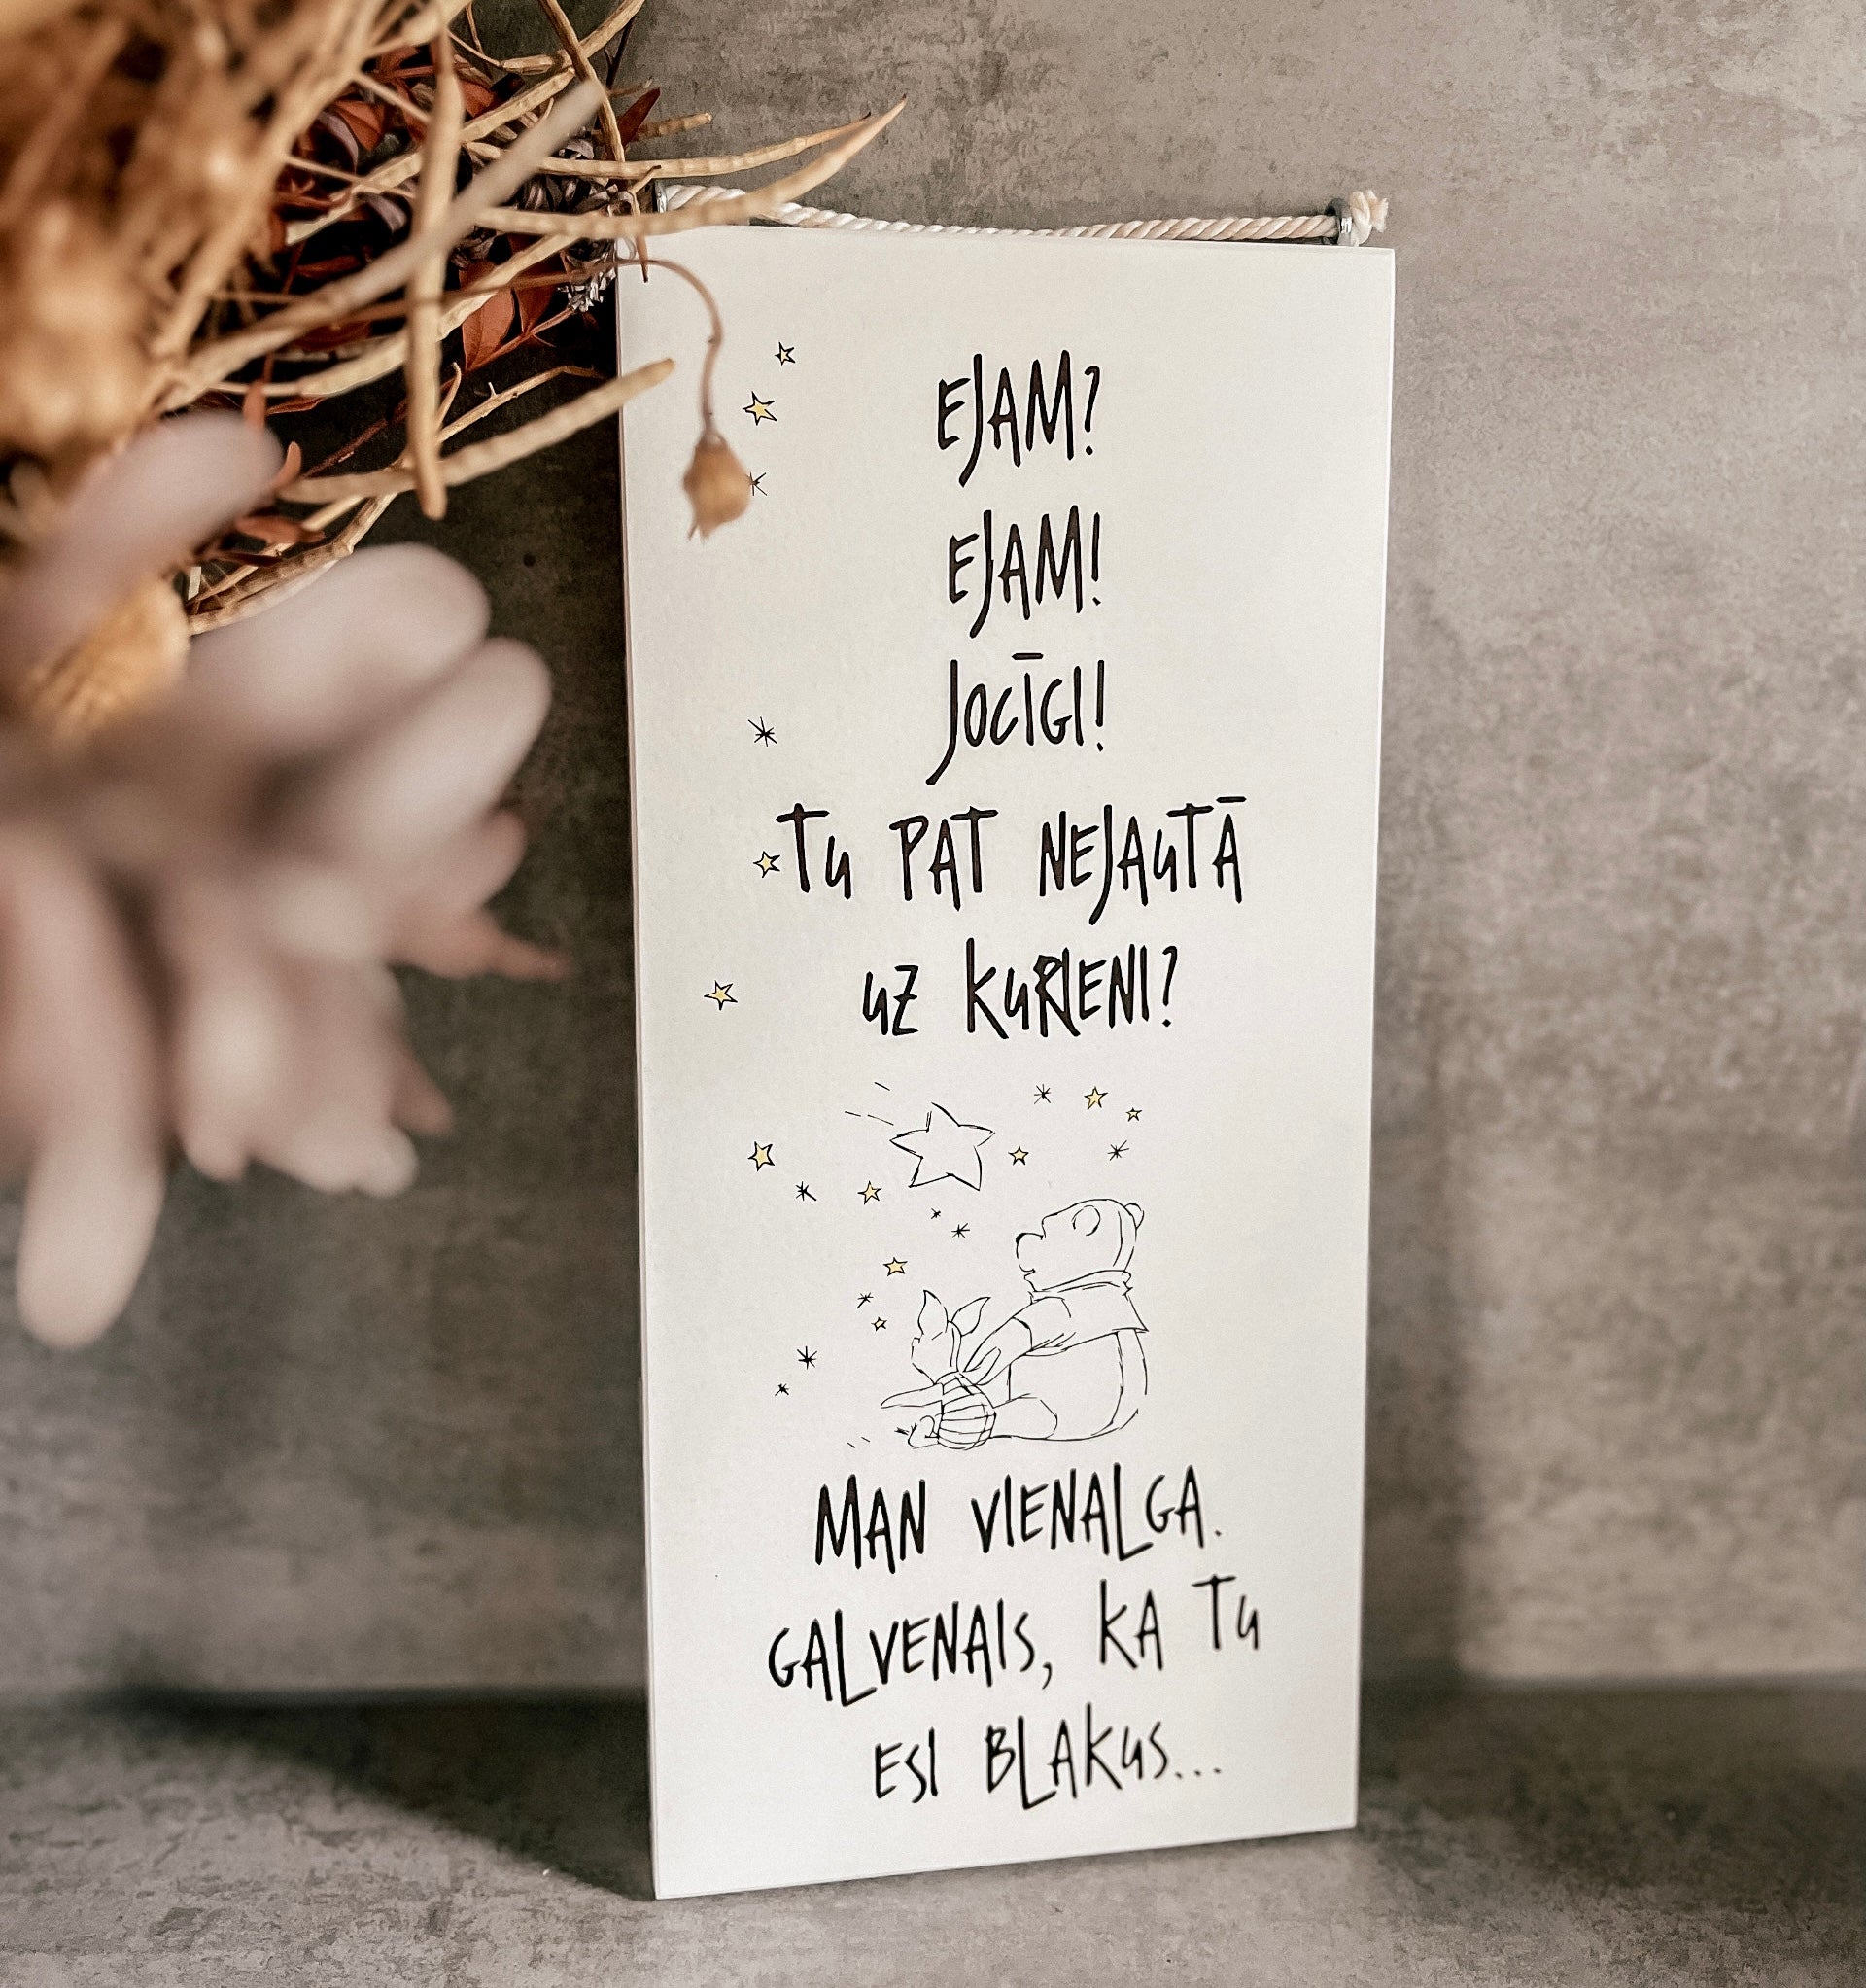 EJAM?
EJAM!
JOCĪGI!
Tu PAT NEJAuTĀ
uZ KuRIENI?
MAN VIENALGA.
GALVENAIS, KA Tu
ESI BLAKuS...